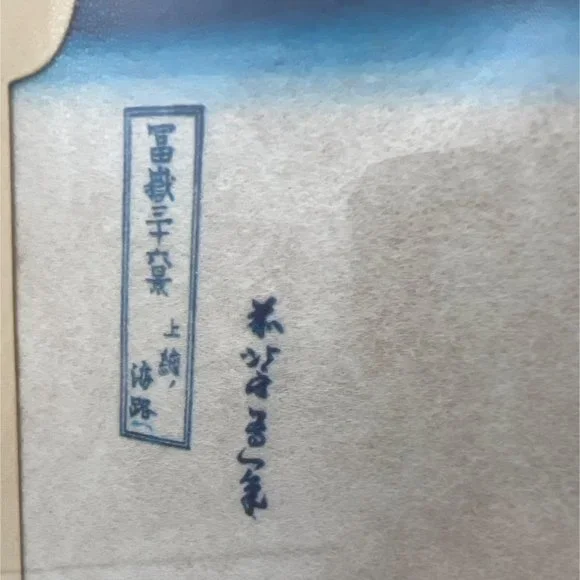 冨嶽三十六景
上總ノ
海路
前北斎為一筆